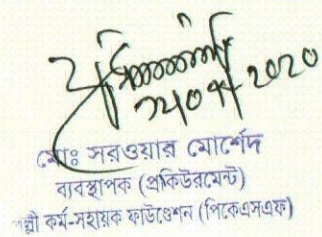 মোঃ সরওয়ার মোর্শেদ
ব্যবস্থাপক (প্রকিউরমেন্ট)
পল্লী কর্ম-সহায়ক ফাউণ্ডেশন (পিকেএসএফ)